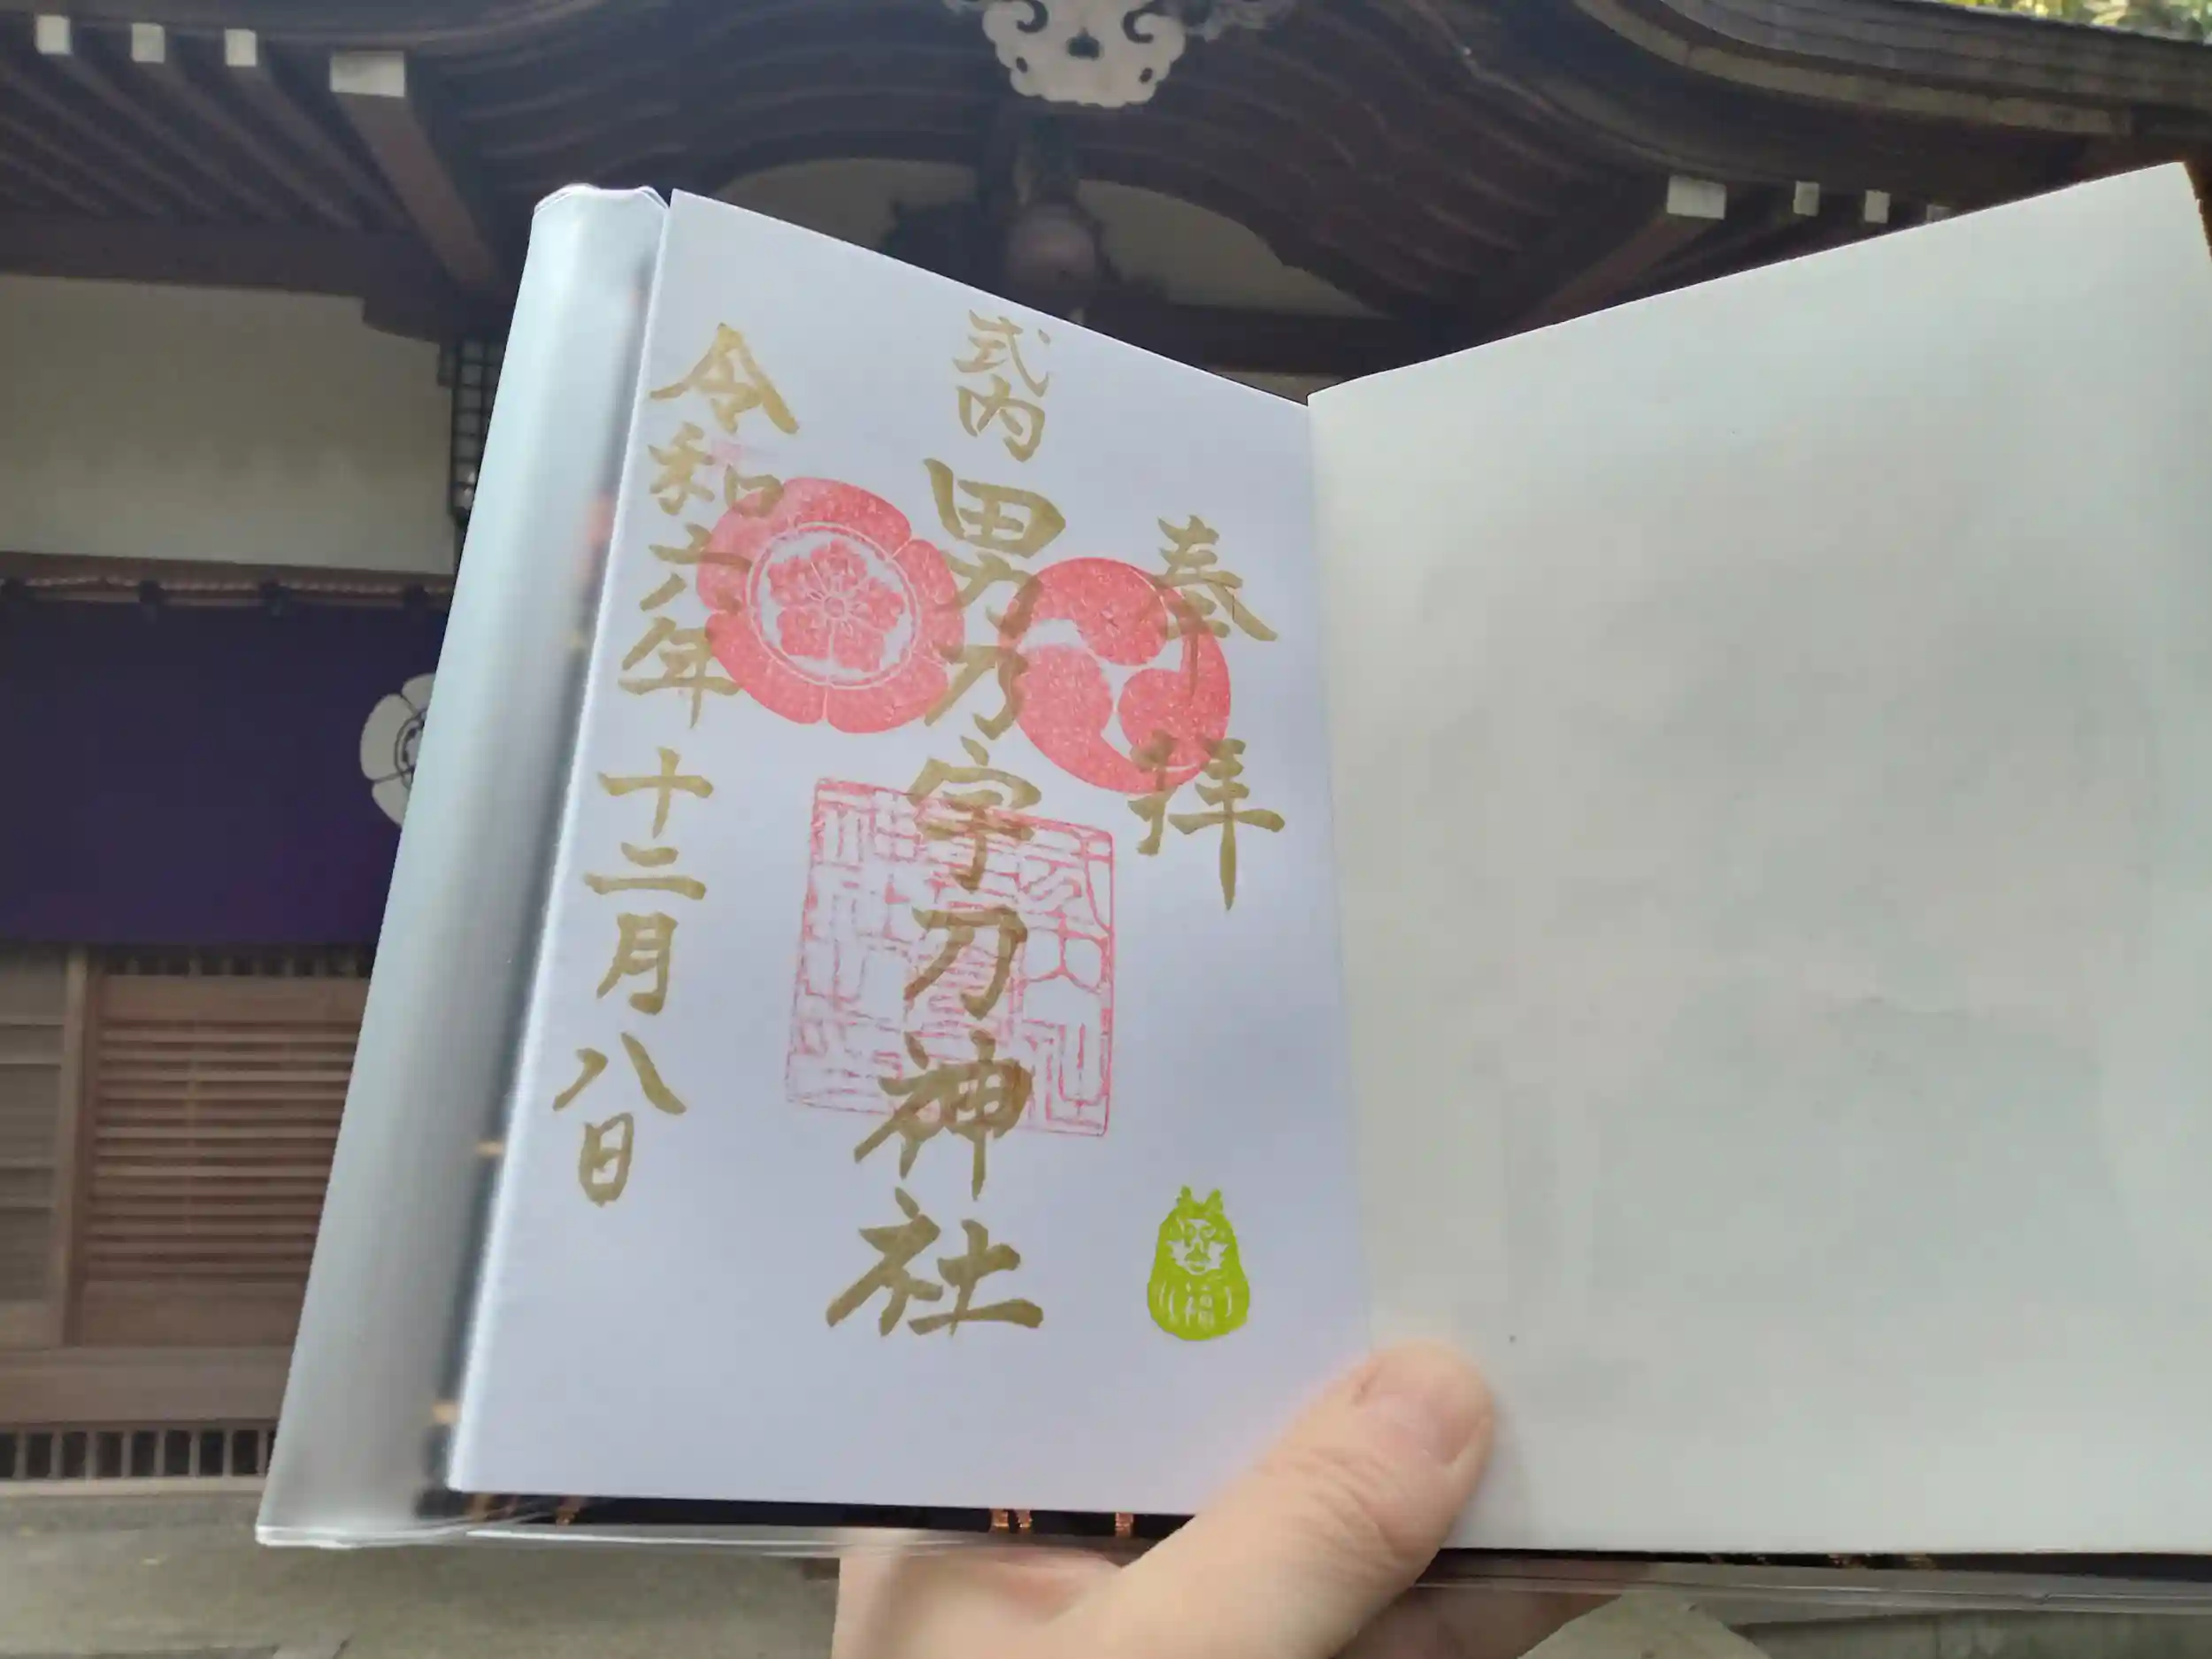 奉拝
式内
男乃宇刀神社
令和六年十二月八日
福